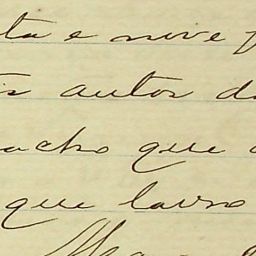 ta e nove
autor d
acho que
que lavro